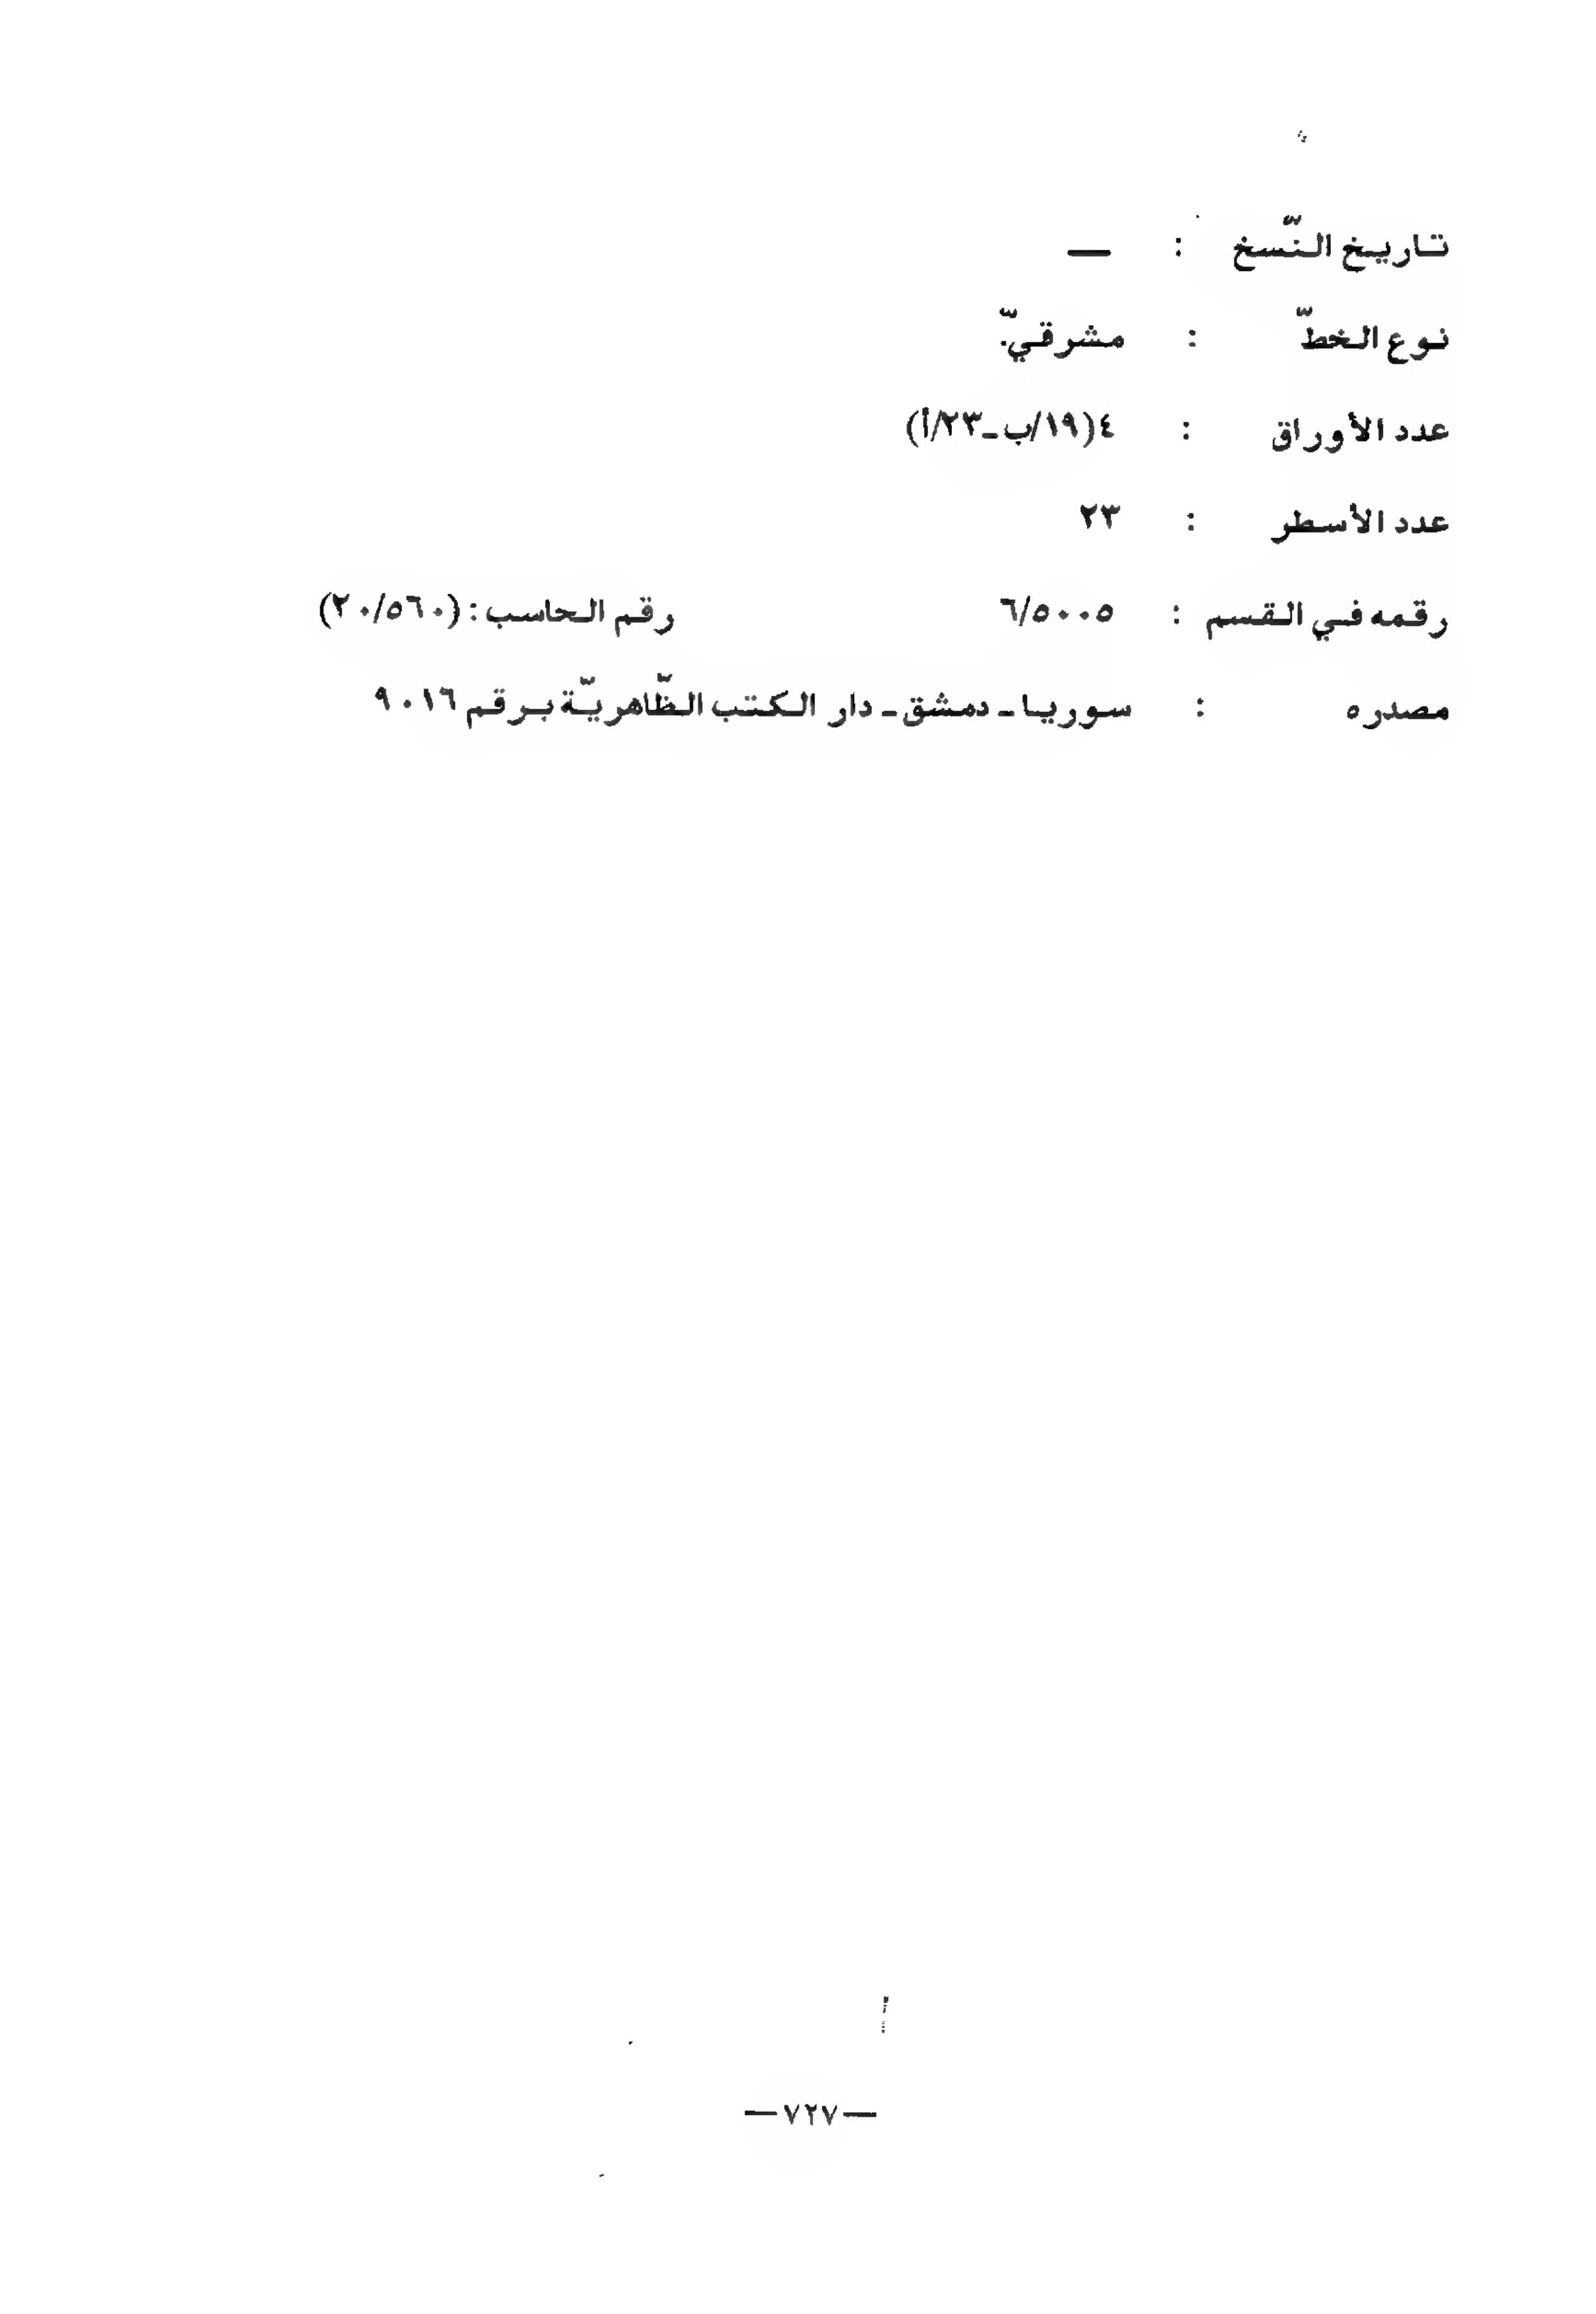 تاريخ النّسخ : —
نوع الخطّ : مشرقيّ.
عدد الأوراق : ٤(١٩/ب ـ ٢٣/أ)
عدد الأسطر : ٢٣
رقمه في القسم : ٦/٥٠٠٥ رقم الحاسب : (٢٠/٥٦٠)
مصدره : سوريا ـ دمشق ـ دار الكتب الظّاهريّة برقم ٩٠١٦
— ٧٢٧ —